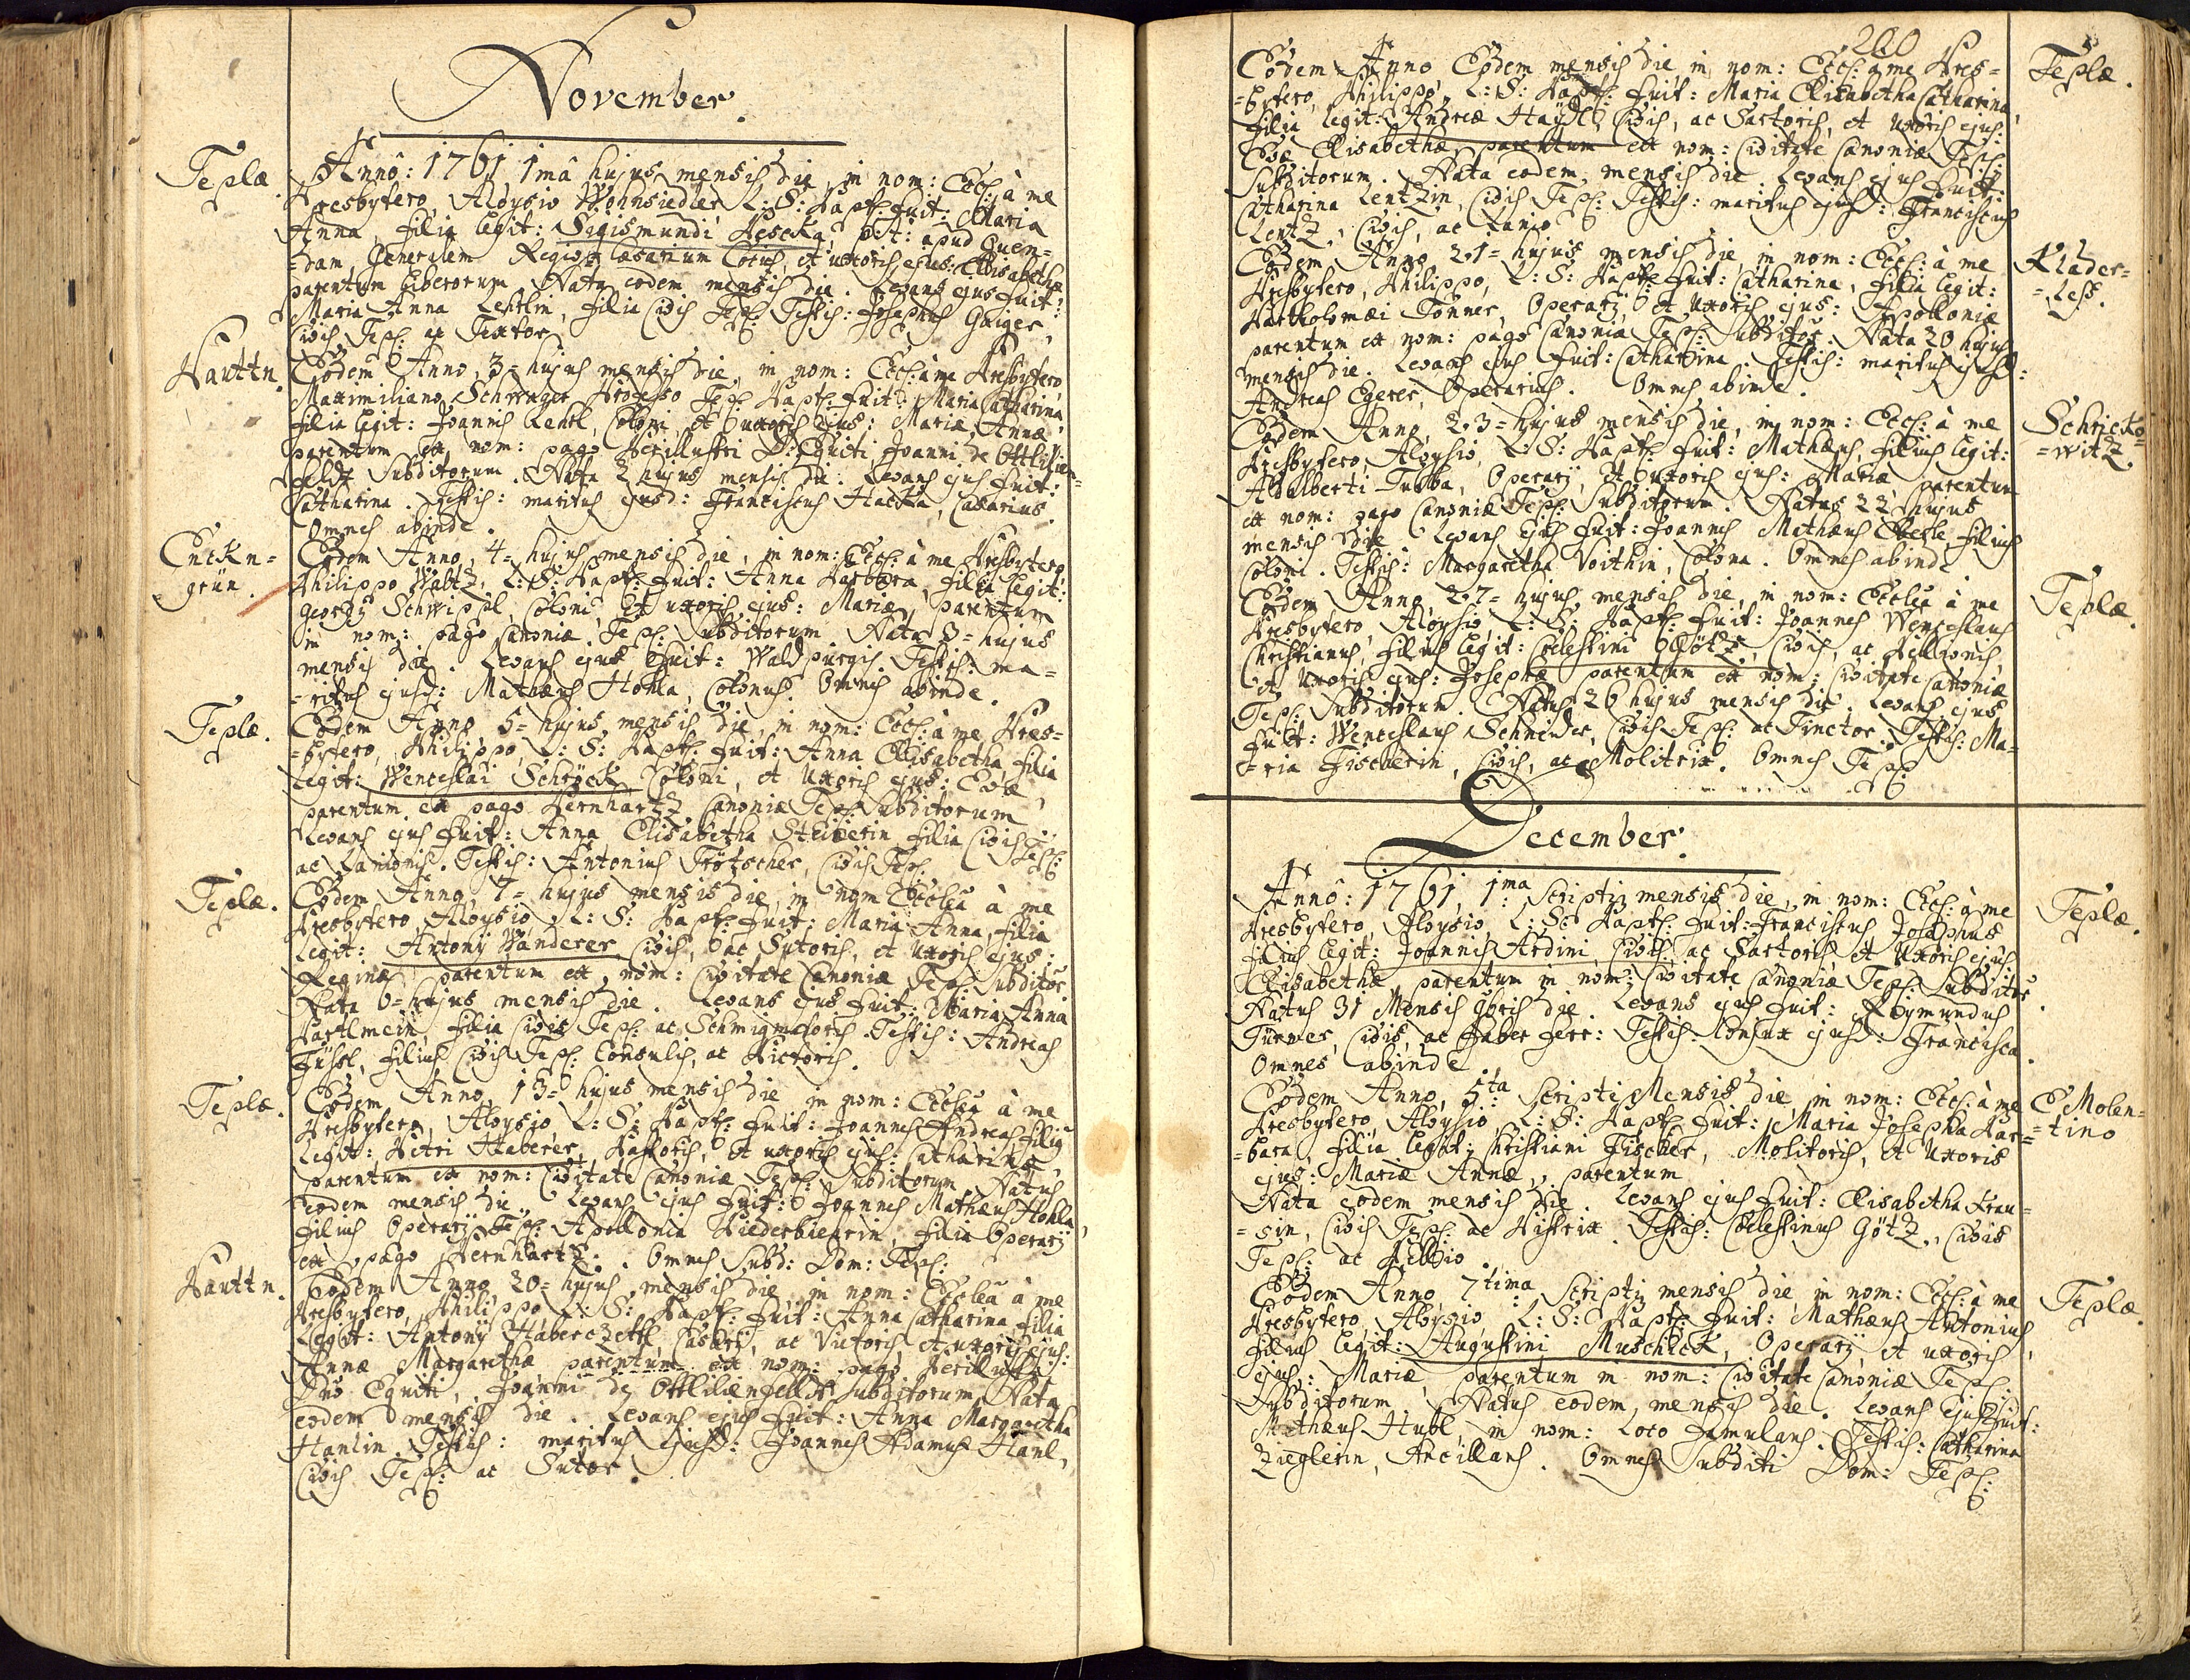 November.
Teplæ.
Annô: 1761 1mâ hujus mensis die in nom: Eccl: à me
Presbytero, Aloysio Wohnsiedler L: S: Bapt: fuit: Maria
Anna, filia legit: Sigismundi Pescka, p: t: apud quen=
=dam Generalem Regio Cæsarium Cocus, et uxoris ejus: Elisabethæ
parentum liberorum. Nata eodem mensis die. Levans ejus fuit:
Maria Anna Lentlin, filia Civis Tepl: Testis: Josephus Gaiger,
Civis Tepl: ac Textor.
Hauttn.
Eodem Anno, 3= hujus mensis die, in nom: Eccl: à me Presbytero,
Maximiliano Schwager Professo Tepl: Bapt: fuit: Maria Catharina,
filia legit: Joannis Lentl, Coloni, et uxoris ejus: Mariæ Annæ,
parentum ex nom: pago Perillustri D: Equiti Joanni de Ottilien=
feldt Subditorum. Nata 2 hujus mensis die. Levans ejus fuit:
Catharina. Testis: maritus ejusd: Franciscus Hacka, Casarius.
Omnes abinde.
Enckn=
grün.
Eodem Anno, 4= hujus mensis die, in nom: Eccl: à me Presbytero
Philippo Wabtz, L: S: Bapt: fuit: Anna Barbara, filia legit:
Georgÿ Schwippl, Coloni, et uxoris ejus: Mariæ, parentum
in nom: pago Canoniæ Tepl: Subditorum. Nata 3= hujus
mensis die. Levans ejus fuit: Waldpurgis. Testis: ma=
=ritus ejusd: Mathæus Hohla, Colonus. Omnes abinde.
Teplæ.
Eodem Anno, 5= hujus mensis die, in nom: Eccl: à me Pres=
=bytero, Philippo, L: S: Bapt: fuit: Anna Elisabetha filia
legit: Wenceslai Schröck Coloni, et Uxoris ejus: Evæ,
parentum ex pago Pernhartz Canoniæ Tepl: Subditorum
Levans ejus fuit: Anna Elisabetha Steiberin filia Civis Tepl:
ac Lanionis. Testis: Antonius Trötscher, Civis Tepl:
Teplæ.
Eodem Anno, 7= hujus mensis die, in nom Ecclea à me
Presbytero, Aloysio, L: S: Bapt: fuit: Maria Anna, filia
legit: Antonÿ Wanderer, Civis, ac Sutoris, et Uxoris ejus:
Reginæ parentum ex nom: Civitate Canoniæ Tepl: Subditor:
Nata 6= hujus mensis die. Levans ejus fuit: Maria Anna
Bartlmein, filia Civis Tepl: ac Schmigmatoris. Testis: Andreas
Füssl, filius Civis Tepl: Consulis, ac Pictoris.
Teplæ.
Eodem Anno, 13= hujus mensis die in nom: Ecclea à me
Presbytero, Aloysio L: S: Bapt: fuit: Joannes Andreas filius
legit: Petri Haberer, Pastoris, et uxoris ejus: Catharinæ,
parentum ex nom: Civitate Canoniæ Tepl: Subditorum. Natus
eodem mensis die. Levans ejus fuit: Joannes Mathæus Hohla,
filius Operarÿ Tepl: Apollonia Niederbieerin, filia Operarÿ
ex pago Pernhartz. Omnes Subd: Dom: Tepl:
Hauttn.
Eodem Anno, 20= hujus mensis die, in nom: Ecclea à me
Presbytero, Philippo L: S: Bapt: fuit: Anna Catharina filia
legit: Antonÿ Haberczettl, Casarÿ, ac Victoris, et uxoris ejus:
Annæ Margarethæ parentum ex nom: pago Perillustri
Dno Equiti, Joanni de Ottilienfeldt Subditorum. Nata
eodem mensis die. Levans ejus fuit: Anna Margaretha
Hanlin. Testis: maritus ejusd: Joannes Adamus Hanl,
Civis Tepl: ac Sutor.
200
Teplæ.
Eodem Anno Eodem mensis die in nom: Eccl: à me Pres=
=bytero, Philippo, L: S: Bapt: fuit: Maria Elisabetha Catharina,
filia legit: Andreæ Haydl, Civis, ac Sartoris, et uxoris ejus:
Evæ Elisabethæ, parentum ex nom: Civitate Canoniæ Tepl:
Subditorum. Nata eodem mensis die. Levans ejus fuit:
Catharina Lentzin, Civis Tepl: Testis: maritus ejusd: Franciscus
Lentz, Civis, ac Lanio.
Klader=
=less.
Eodem Anno, 21= hujus mensis die, in nom: Eccl: à me
Presbytero, Philippo, L: S: Bapt: fuit: Catharina, filia legit:
Bartholomæi Tonner, Operarÿ, et Uxoris ejus: Apolloniæ
parentum ex nom: pago Canonia Tepl: Subditor: Nata 20 hujus
mensis die. Levans ejus fuit: Catharina. Testis: maritus ejusd:
Andreas Egerer, Operarius. Omnes abinde.
Schricko=
=witz.
Eodem Anno, 23= hujus mensis die, in nom: Eccl: à me
Presbytero, Aloysio, L: S: Bapt: fuit: Mathæus, filius legit:
Adalberti Tubba, Operarÿ, et uxoris ejus: Mariæ parentum
ex nom: pago Canoniæ Tepl: Subditorum. Natus 22 hujus
mensis die. Levans ejus fuit: Joannes Mathæus Eberle, filius
Coloni. Testis: Margaretha Voithin, Colona. Omnes abinde
Teplæ.
Eodem Anno, 27= hujus mensis die, in nom: Ecclea à me
Presbytero, Aloysio L: S: Bapt: fuit: Joannes Wenceslaus
Christianus, filius legit: Coelestini Götz, Civis, ac Pellionis,
et Uxoris ejus: Josephæ parentum ex nom: Civitate Canoniæ
Tepl: Subditorum. Natus 26 hujus mensis die. Levans ejus
fuit: Wenceslaus Schneider, Civis Tepl: ac Tinctor. Testis: Ma=
=ria Fischerin, Civis, ac Molitrix. Omnes Tepl:
December.
Teplæ.
Annô: 1761, 1ma Scripti mensis die, in nom: Eccl: à me
Presbytero, Aloysio, L: S: Bapt: fuit: Franciscus Josephus
filius legit: Joannis Ardini, Civis, ac Sartoris et Uxoris ejus
Elisabethæ parentum in nom: Civitate Canoniæ Tepl: Subditor
Natus 31 Mensis 9bris die. Levans ejus fuit: Raymundus
Türmer, Civis, ac faber ferr: Testis: Conjux ejusd: Francisca.
Omnes abinde.
E Molen=
=tino
Eodem Anno, 5ta Scripti Mensis die in nom: Eccl: à me
Presbytero, Aloysio L: S: Bapt: fuit: Maria Josepha Bar=
=bara, filia legit: Christiani Fischer, Molitoris, et Uxoris
ejus: Mariæ Annæ, parentum
Nata eodem mensis die Levans ejus fuit: Elisabetha Krau=
=sin, Civis Tepl: ac Pistrix. Testis: Coelestinus Götz, Civis
Tepl: ac Pellio.
Teplæ.
Eodem Anno 7tima Scripti mensis die in nom: Eccl: à me
Presbytero, Aloysio L: S: Bapt: fuit: Mathæus Antonius,
filius legit: Augustini Muschick, Operarÿ, et uxoris
ejus: Mariæ parentum in nom: Civitate Canoniæ Tepl:
Subditorum. Natus eodem mensis die. Levans ejus fuit:
Mathæus Hubl, in nom: Loco famulans. Testis: Catharina
Zieglerin, Ancillans. Omnes Subditi Dom: Tepl: